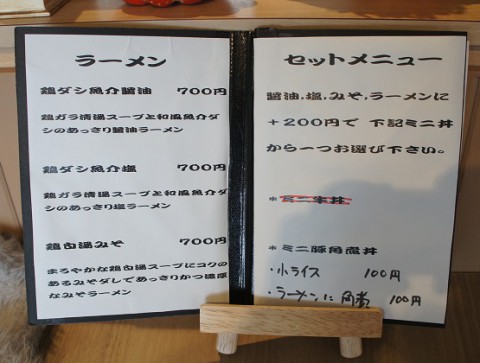 ラーメン
鶏ダシ魚介醤油 700円
鶏ガラ清湯スープと和風魚介ダ
シのあっさり醤油ラーメン
鶏ダシ魚介塩 700円
鶏ガラ清湯スープと和風魚介ダシ
のあっさり塩ラーメン
鶏白湯みそ 700円
まろやかな鶏白湯スープにコクの
あるみそダレであっさりかつ濃厚
なみそラーメン
セットメニュー
醤油,塩,みそ,ラーメンに
+200円で 下記ミニ丼
から一つお選び下さい。
*ミニ牛丼
*ミニ豚角煮丼
・小ライス 100円
・ラーメンに角煮 100円